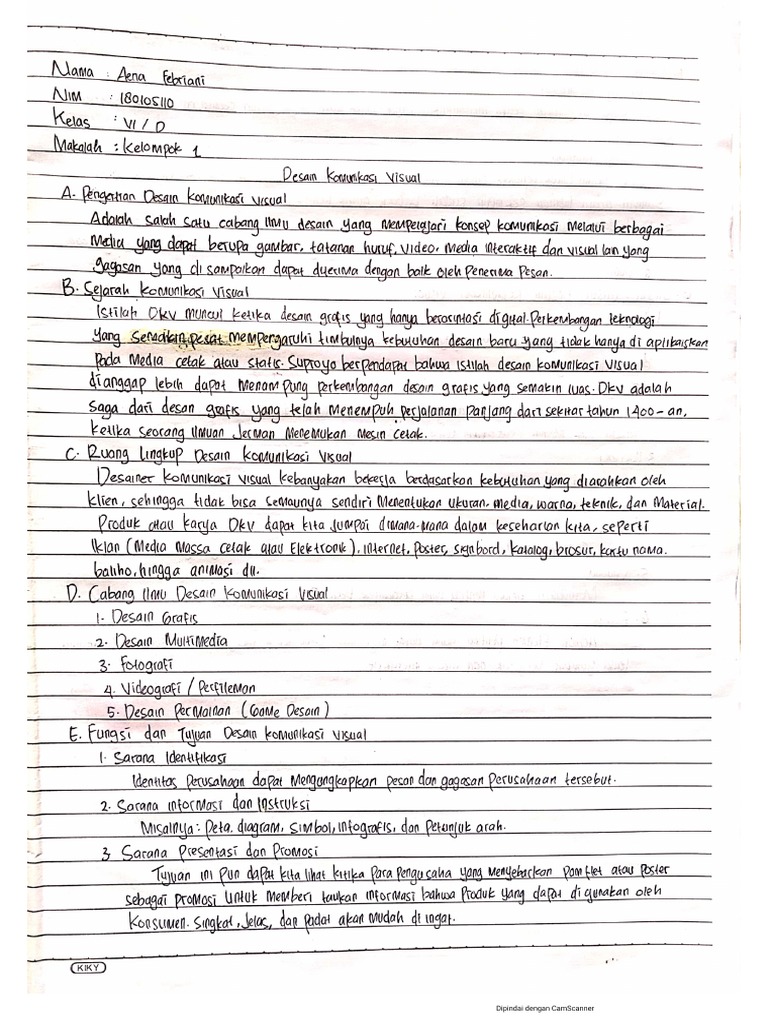 Nama : Aena Febriani
NIM : 180105110
Kelas : VI / D
Makalah : Kelompok 1
Desain Komunikasi Visual
A. Pengertian Desain Komunikasi Visual
Adalah salah satu cabang Ilmu desain yang mempelajari konsep komunikasi melalui berbagai
Media yang dapat berupa gambar, tatanan huruf, video, media interaktif dan visual lain yang
gagasan yang di sampaikan dapat diterima dengan baik oleh penerima pesan.
B. Sejarah Komunikasi Visual
Istilah DKV muncul ketika desain grafis yang hanya berorintasi digital. Perkembangan teknologi
yang semakin pesat mempergaruhi timbulnya kebutuhan desain baru yang tidak hanya di aplikaiskan
pada media cetak atau statis. Suproyo berpendapat bahwa istilah desain komunikasi visual
dianggap lebih dapat menampung perkembangan desain grafis yang semakin luas. DKV adalah
saga dari desan grafis yang telah menempuh perjalanan panjang dari sekitar tahun 1400-an,
ketika seorang ilmuan Jerman menemukan mesin cetak.
C. Ruang Lingkup Desain Komunikasi Visual
Desainer komunikasi visual kebanyakan bekerja berdasarkan kebutuhan yang diarahkan oleh
klien, sehingga tidak bisa semaunya sendiri menentukan ukuran, media, warna, teknik, dan material.
Produk atau karya DKV dapat kita jumpai dimana-mana dalam keseharian kita, seperti
Iklan (Media Massa cetak atau Elektronik), internet, poster, signbord, katalog, brosur, kartu nama.
baliho, hingga animasi dll.
D. Cabang Ilmu Desain Komunikasi Visual
1. Desain Grafis
2. Desain Multimedia
3. Fotografi
4. Videografi / Perfileman
5. Desain Permainan (Game Desain)
E. Fungsi dan Tujuan Desain Komunikasi Visual
1. Sarana Identifikasi
Identitas perusahaan dapat mengungkapkan pesan dan gagasan perusahaan tersebut.
2. Sarana informasi dan Instruksi
Misalnya: Peta, diagram, simbol, infografis, dan petunjuk arah.
3. Sarana Presentasi dan Promosi
Tujuan ini pun dapat kita lihat kitika para pengusaha yang menyebarkan pamflet atau poster
sebagai promosi untuk memberi taukan informasi bahwa produk yang dapat di gunakan oleh
konsumen. Singkat, Jelas, dan padat akan mudah di ingat.
KIKY
Dipindai dengan CamScanner